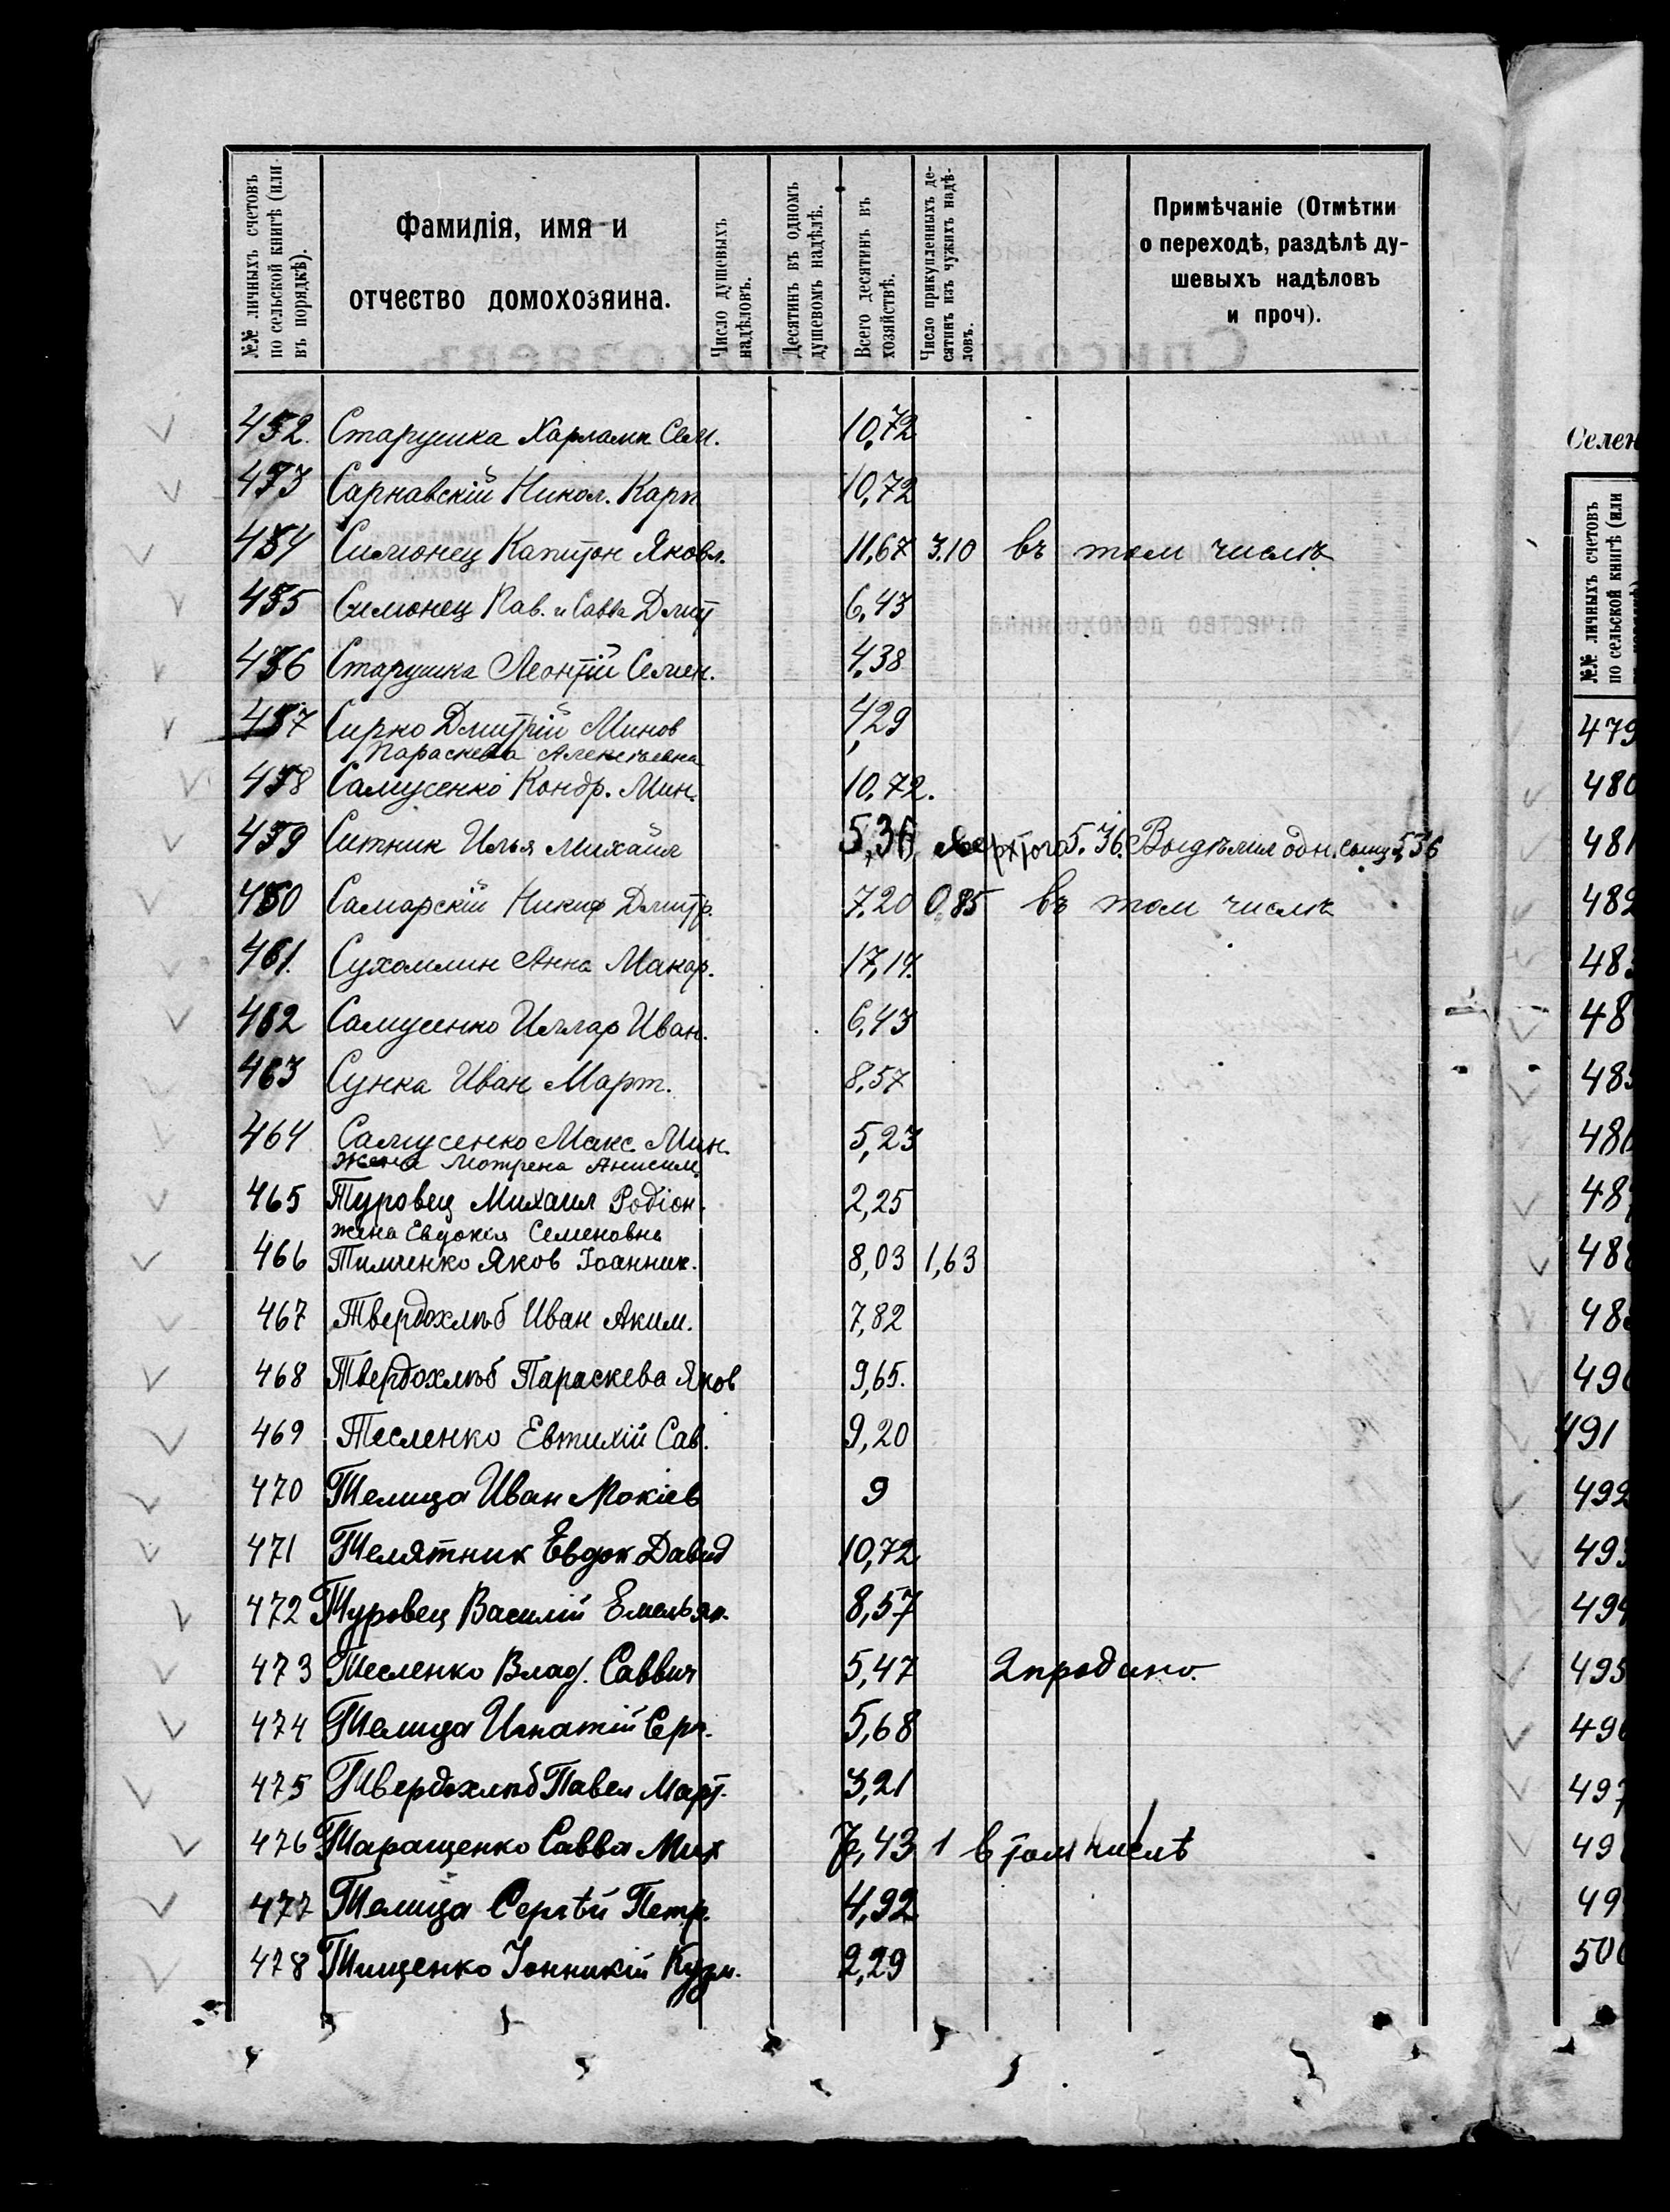 №№ личныхъ счетовъ по сельской книгѣ (или въ порядкѣ).
Фамилія, имя и отчество домохозяина.
Число душевыхъ надѣловъ.
Десятинъ въ одномъ душевомъ надѣлѣ.
Всего десятинъ въ хозяйствѣ.
Число прикупленныхъ десятинъ изъ чужихъ надѣловъ.
Примѣчаніе (Отмѣтки о переходѣ, раздѣлѣ душевыхъ надѣловъ и проч).
452. Старушка Харламп Сем. 10,72
453 Сарнавскій Никол. Карп 10,72
454 Симонец Капитон Яковл. 11,67 3.10 въ том числѣ
455 Симонец Пав. и Савва Дмит 6,43
456 Старушка Леонтій Семен. 4,38
457 Сирко Дмитрій Минов 4,29
Параскева Алексѣевна
458 Самусенко Кондр. Мин. 10,72.
459 Ситник Илья Михаил 5,36 5.36. Выдѣлил одн. сыну 5,36
460 Самарскій Никиф Дмитр. 7,20 0,85 въ том числѣ
461. Сухомлин Анна Макар. 17,14.
462 Самусенко Иллар Иван. 6,43
463 Сунка Иван Март. 8,57
464 Самусенко Макс. Мин. 5,23
жена Мотрена Анисим.
465 Туровец Михаил Родіон. 2,25
жена Евдокія Семеновна
466 Тимченко Яков Іоанник. 8,03 1,63
467 Твердохлѣб Иван Аким. 7,82
468 Твердохлѣб Параскева Яков 9,65.
469 Тесленко Евтихій Сав. 9,20
470 Телица Иван Мокіев 9
471 Телятник Евдок Давид 10,72
472 Туровец Василій Емельян. 8,57
473 Тесленко Влад. Саввич 5,47 2 продано.
474 Телица Игнатій Серг. 5,68
475 Твердохлѣб Павел Март. 3,21
476 Таращенко Савва Мих 7,43 1 в том числѣ
477 Телица Сергѣй Петр. 4,92
478 Тищенко Іонникій Кузм. 2,29
Селен
№№ личныхъ счетовъ
по сельской книгѣ (или
479
480
481
482
48
48
48
48
48
488
48
49
491
492
49
49
495
49
497
49
49
50